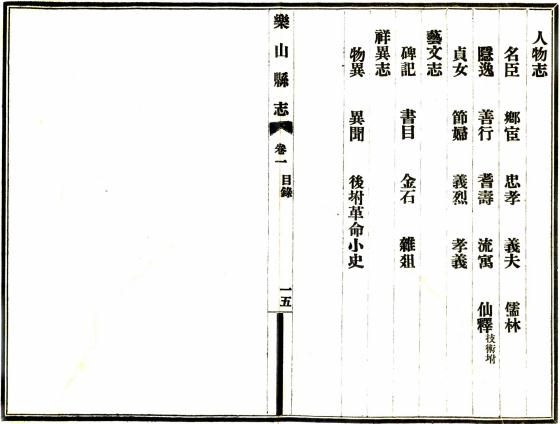 人物志
名臣 鄉宦 忠孝 義夫 儒林
隱逸 善行 耆壽 流寓 仙釋技術坿
貞女 節婦 義烈 孝義
藝文志
碑記 書目 金石 雜俎
祥異志
物異 異聞 後坿革命小史
樂山縣志 卷一 目錄 一五